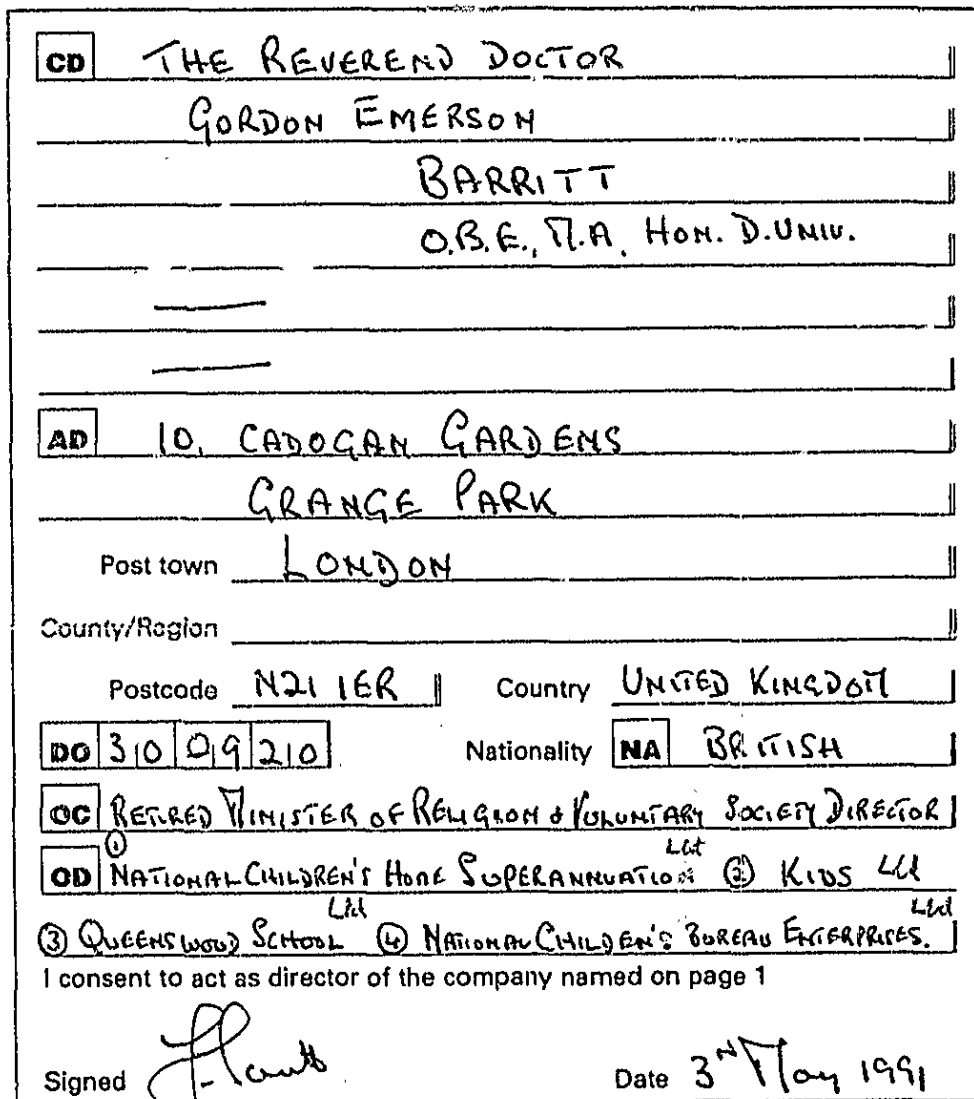 CD THE REVEREND DOCTOR
GORDON EMERSON
BARRITT
O.B.E., M.A. HON. D.UNIV.
AD 10, CADOGAN GARDENS
GRANGE PARK
Post town LONDON
County/Region
Postcode N21 1ER Country UNITED KINGDOM
DO 30 09 20 Nationality NA BRITISH
OC RETIRED MINISTER OF RELIGION & VOLUNTARY SOCIETY DIRECTOR
OD ① NATIONAL CHILDREN'S HOME SUPERANNUATION Ltd ② KIDS Ltd
③ QUEENSWOOD SCHOOL Ltd ④ NATIONAL CHILDEN'S BUREAU ENTERPRISES. Ltd
I consent to act as director of the company named on page 1
Signed Date 3 May 1991